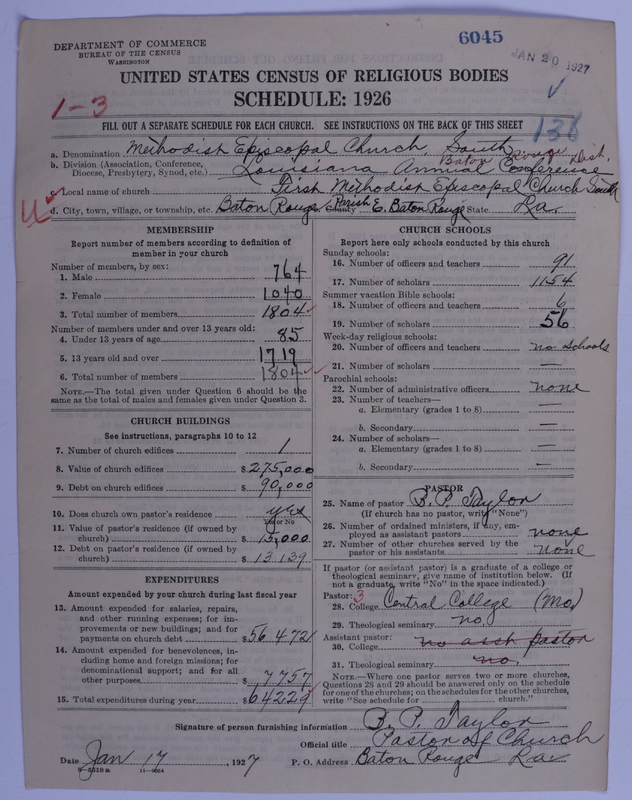 6045
JAN 20 1927
DEPARTMENT OF COMMERCE
BUREAU OF THE CENSUS
WASHINGTON
UNITED STATES CENSUS OF RELIGIOUS BODIES
SCHEDULE: 1926
1-3
FILL OUT A SEPARATE SCHEDULE FOR EACH CHURCH. SEE INSTRUCTIONS ON THE BACK OF THIS SHEET
136
a. Denomination Methodist Episcopal Church, South
Baton Rouge Dist.
b. Division (Association, Conference, Diocese, Presbytery, Synod, etc.) Louisiana Annual Conference
c. Local name of church First Methodist Episcopal Church South
d. City, town, village, or township, etc. Baton Rouge County Parish E. Baton Rouge State La.
MEMBERSHIP
Report number of members according to definition of
member in your church
Number of members, by sex:
1. Male 764
2. Female 1040
3. Total number of members 1804
Number of members under and over 13 years old:
4. Under 13 years of age 85
5. 13 years old and over 1719
6. Total number of members 1804
NOTE.—The total given under Question 6 should be the
same as the total of males and females given under Question 3.
CHURCH BUILDINGS
See instructions, paragraphs 10 to 12
7. Number of church edifices 1
8. Value of church edifices $275,000
9. Debt on church edifices $90,000
10. Does church own pastor's residence yes
Yes or No
11. Value of pastor's residence (if owned by
church) $15,000
12. Debt on pastor's residence (if owned by
church) $13 139
EXPENDITURES
Amount expended by your church during last fiscal year
13. Amount expended for salaries, repairs,
and other running expenses; for im-
provements or new buildings; and for
payments on church debt $56,472
14. Amount expended for benevolences, in-
cluding home and foreign missions; for
denominational support; and for all
other purposes $7757
15. Total expenditures during year $64229
CHURCH SCHOOLS
Report here only schools conducted by this church
Sunday schools:
16. Number of officers and teachers 91
17. Number of scholars 1154
Summer vacation Bible schools:
18. Number of officers and teachers 6
19. Number of scholars 56
Week-day religious schools:
20. Number of officers and teachers no schools
21. Number of scholars —
Parochial schools:
22. Number of administrative officers none
23. Number of teachers—
a. Elementary (grades 1 to 8) —
b. Secondary —
24. Number of scholars—
a. Elementary (grades 1 to 8) —
b. Secondary —
PASTOR
25. Name of pastor B. P. Taylor
(If church has no pastor, write "None")
26. Number of ordained ministers, if any, em-
ployed as assistant pastors none
27. Number of other churches served by the
pastor or his assistants none
If pastor (or assistant pastor) is a graduate of a college or
theological seminary, give name of institution below. (If
not a graduate, write "No" in the space indicated.)
Pastor: 3
28. College Central College (Mo.)
29. Theological seminary no.
Assistant pastor:
30. College no asst pastor
31. Theological seminary no.
NOTE.—Where one pastor serves two or more churches,
Questions 28 and 29 should be answered only on the schedule
for one of the churches; on the schedules for the other churches,
write "See schedule for church."
Signature of person furnishing information B. P. Taylor
Official title Pastor of Church
Date Jan 17, 1927 P. O. Address Baton Rouge La
11—9684